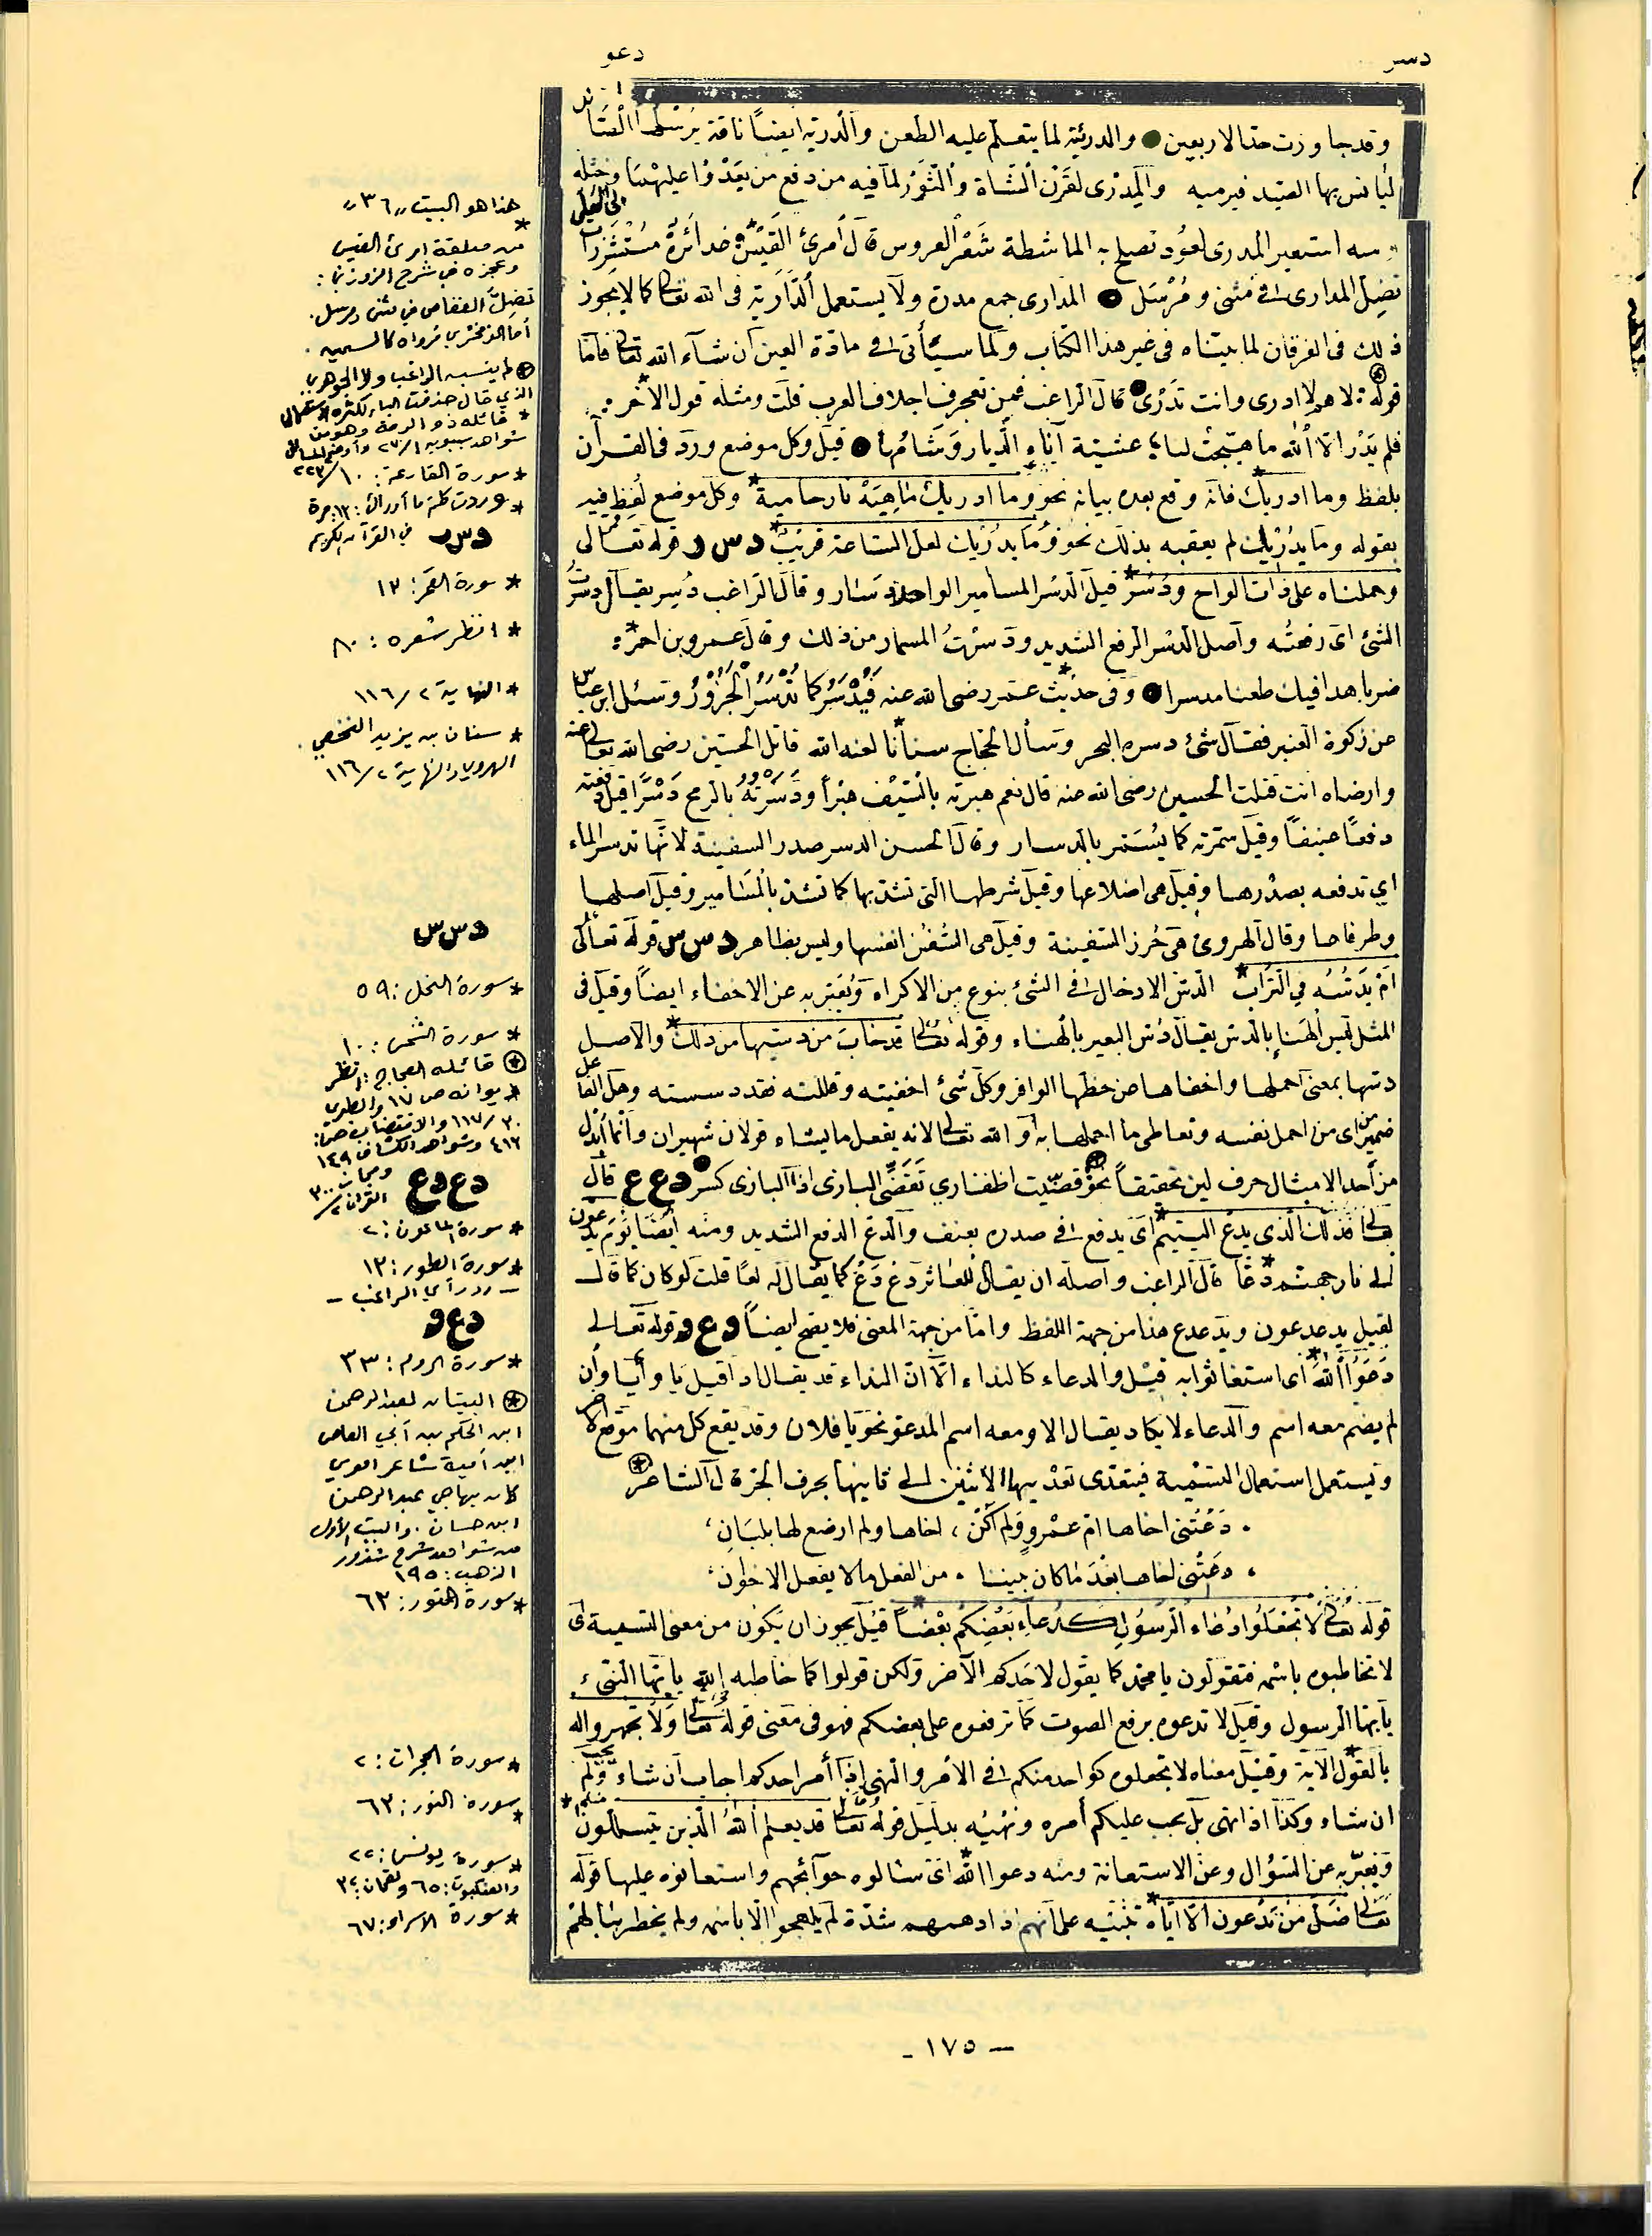 دسر
دعو
وقد جاوزت حد الاربعين والدريئة لما يتعلم عليه الطعن والدرية ايضاً ناقة يرسلها الصائد
ليأنس بها الصيد فيرميه والمدرى لقرن الشاة والثور لما فيه من دفع من يعدوا عليهما وختله
استعير المدرى لعود تصلح به الماشطة شعر العروس قال امرئ القيس غدائره مستشزرات الى العلى
تضل المدارى في مثنى ومرسل المدارى جمع مدرة ولا يستعمل الدراية في الله تعالى كما لا يجوز
ذلك في الفرقان لما بيناه في غير هذا الكتاب ولما سيأتي في مادة العين ان شاء الله تعالى فاما
قوله لاهم لا ادرى وانت تدرى قال الراغب فمن تعجرف اجلاف العرب قلت ومثله قول الآخر
فلم يدر الا الله ما هيجت لنا عشية آناء الديار وشامها قيل وكل موضع ورد في القرآن
بلفظ وما ادريك فانه وقع بعده بيانه نحو وما ادريك ماهيه نار حامية وكل موضع لفظ فيه
بقوله وما يدريك لم يعقبه بذلك نحو وما يدريك لعل الساعة قريب د س ر قوله تعالى
وحملناه على ذات الواح ودسر قيل الدسر المسامير الواحد دسار وقال الراغب دسير يقال دسرت
الشئ اى دفعته واصل الدسر الدفع الشديد ودسرت المسمار من ذلك وقال عمرو بن احمر
ضربا هذا فيك طعنا مدسرا وفي حديث عمر رضى الله عنه فيدسر كما تدسر الجزور وسئل ابن عباس
عن زكوة العنبر فقال شئ دسره البحر وسأل الحجاج سنانا لعنه الله قاتل الحسين رضى الله تعالى عنه
وارضاه انت قتلت الحسين رضى الله عنه قال نعم هبرته بالسيف هبراً ودسرته بالرمح دسراً قيل دفعته
دفعاً عنيفاً وقيل سمرته كما يسمر بالدسار وقال الحسن الدسر صدر السفينة لانها تدسر الماء
اي تدفعه بصدرها وقيل هى اضلاعها وقيل شرطها التى تشد بها كما تشد بالمسامير وقيل اصلها
وطرفاها وقال الهروى هى خرز السفينة وقيل هى السفن انفسها وليس بظاهر د س س قوله تعالى
ام يدسه في التراب الدس الادخال في الشئ بنوع من الاكراه ويعبر به عن الاخفاء ايضاً وقيل في
المثل ليس الهناء بالدس يقال دس البعير بالهناء وقوله تعالى قد خاب من دسيها من ذلك والاصل
دسها بمعنى اهملها واخفاها من حظها الوافر وكل شئ اخفيته وقللته فقد دسسته وهل الفاعل
ضمير من اى من اهمل نفسه وتعاطى ما اهملها به او الله تعالى لانه يفعل ما يشاء قولان شهيران وانما ابدل
من احد الامثال حرف لين تخفيفاً نحو قصيت اظفاري تقضى البازى اذا البازى كسر د ع ع قال
تعالى فذلك الذى يدع اليتيم اى يدفع في صدره بعنف والدع الدفع الشديد ومنه ايضا يوم يدعون
الى نار جهنم دعا قال الراغب واصله ان يقال للعاثر دع دع كما يقال له لعاً قلت لو كان كما قال
لقيل يدعدعون ويدعدع هذا من جهة اللفظ واما من جهة المعنى فلا يصح ايضاً د ع و قوله تعالى
دعوا الله اى استغاثوا به قيل والدعاء كالنداء الا ان النداء قد يقال اذا قيل يا وأيا وإن
لم يضم معه اسم والدعاء لا يكاد يقال الا ومعه اسم المدعو نحو يا فلان وقد يقع كل منهما موقع الآخر
ويستعمل استعمال التسمية فيتعدى تعديها لاثنين الى ثانيها بحرف الجر قال الشاعر
دعتني اخاها ام عمرو ولم اكن اخاها ولم ارضع لها بلبان
دعتني اخاها بعد ما كان بيننا من الفعل ما لا يفعل الاخوان
قوله تعالى لا تجعلوا دعاء الرسول كدعاء بعضكم بعضاً قيل يجوز ان يكون من معنى التسمية اى
لا تخاطبوه باسمه فتقولون يا محمد كما يقول لاحدكم الآخر ولكن قولوا كما خاطبه الله يا ايها النبىء
يا ايها الرسول وقيل لا تدعوه برفع الصوت كما ترفعوه على بعضكم فهو فى معنى قوله تعالى ولا تجهروا له
بالقول الآية وقيل معناه لا تجعلوه كواحد منكم في الامر والنهى اذا أمر احدكم اجاب ان شاء ولم يجب
ان شاء وكذا اذا نهى بل يجب عليكم أمره ونهيه بدليل قوله تعالى قد يعلم الله الذين يتسللون منكم
ويعبر به عن السؤال وعن الاستعانة ومنه دعوا الله اى سالوه حوآئجهم واستعانوه عليها قوله
تعالى ضل من تدعون الا اياه تنبيه على انهم اذا دهمهم شدة لم يلهجوا الا باسمه ولم يخطر ببالهم
هذا هو البيت ,,٣٦,,
* من معلقة امرئ القيس
وعجزه في شرح الزوزني:
تضل العقاص في مثنى ومرسل.
أما الزمخشري فرواه كالسمين.
لم ينسبه الراغب ولا الجوهري
الذي قال حذفت الياء لكثرة استعمال
* قائله ذو الرمة وهو من
شواهد سيبويه ٢٧٠/١ وأوضح المسالك
* سورة القارعة: ١٠ ٢٢٣/
* وردت كلمة ما أدراك: ١٣ مرة
في القرآن الكريم
د س ر
* سورة القمر: ١٣
* انظر شعره: ٨٠
* النهاية ١١٦/٢
* سنان بن يزيد النخعي.
الهروي والنهاية ١١٦/٢
د س س
* سورة النحل: ٥٩
* سورة الشمس: ١٠
قائله العجاج: انظر
ديوانه ص ١٧ والطبري
١١٧/٣٠ والاقتضاب ص:
٤١٣ وشواهد الكشاف ١٤٩
ومجاز القرآن ٣٠٠/٢
د ع د ع
* سورة الماعون: ٢
* سورة الطور: ١٣
- رد رأي الراغب -
د ع و
* سورة الروم: ٣٣
البيتان لعبد الرحمن
ابن الحكم بن أبي العاص
ابن أمية شاعر اموي
كان يهاجي عبد الرحمن
ابن حسان. والبيت الأول
من شواهد شرح شذور
الذهب: ١٩٥
* سورة النور: ٦٣
* سورة الحجرات: ٢
* سورة النور: ٦٣
* سورة يونس: ٢٢
والعنكبوت: ٦٥ ولقمان: ٣٢
* سورة الاسراء: ٦٧
- ١٧٥ -